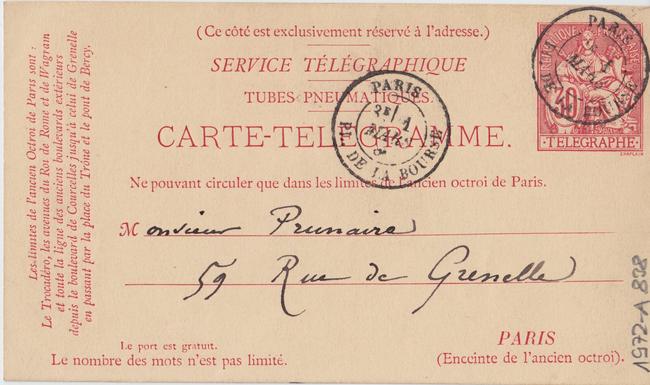 (Ce côté est exclusivement réservé à l'adresse.)
SERVICE TÉLÉGRAPHIQUE
TUBES PNEUMATIQUES.
CARTE-TELEGRAMME.
Ne pouvant circuler que dans les limites de l'ancien octroi de Paris.
Monsieur Prunaire
59 Rue de Grenelle
PARIS
(Enceinte de l'ancien octroi).
Le port est gratuit.
Le nombre des mots n'est pas limité.
Les limites de l'ancien Octroi de Paris sont :
Le Trocadéro, les avenues du Roi de Rome et de Wagram
et toute la ligne des anciens boulevards extérieurs
depuis le boulevard de Courcelles jusqu'à celui de Grenelle
en passant par la place du Trône et le pont de Bercy.
PARIS
MARS
PL. DE LA BOURSE
PARIS
MARS
PL. DE LA BOURSE
TELEGRAPHE
CHAPLAIN
1972-A 838